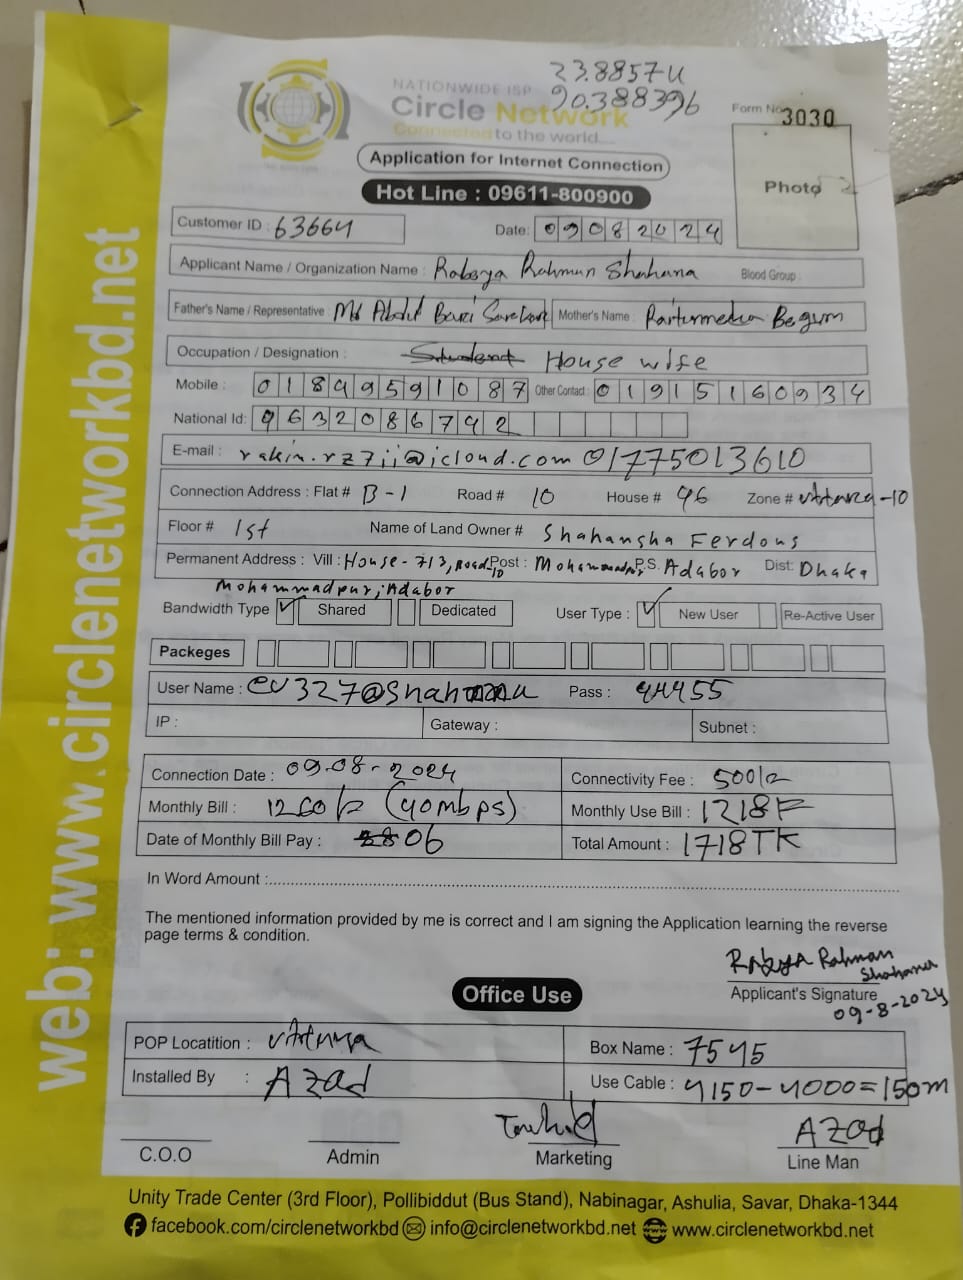 23.8857U
90.388396
NATIONWIDE ISP
Circle Network
Connected to the world...
Form No. 3030
Application for Internet Connection
Hot Line : 09611-800900
Photo
Customer ID : 63664
Date: 09082024
Applicant Name / Organization Name : Rabeya Rahman Shahana Blood Group :
Father's Name / Representative : Md Abdul Bari Sarekar Mother's Name : Begum
Occupation / Designation : Student House wife
Mobile : 01849591087 Other Contact : 01915160934
National Id: 9632086792
E-mail : rakin.rz7ii@icloud.com 01775013610
Connection Address : Flat # B-1 Road # 10 House # 46 Zone # uttara-10
Floor # 1st Name of Land Owner # Shahansha Ferdous
Permanent Address : Vill : House-713, Road-10 Post : Mohammadpur P.S. Adabor Dist: Dhaka
Mohammadpur, Adabor
Bandwidth Type ✓ Shared Dedicated User Type : ✓ New User Re-Active User
Packeges
User Name : @Shahana Pass : 44455
IP : Gateway : Subnet :
Connection Date : 09-08-2024 Connectivity Fee : 500/=
Monthly Bill : 1260/= (40mbps) Monthly Use Bill : 1218৳
Date of Monthly Bill Pay : 06 Total Amount : 1718TK
In Word Amount :
The mentioned information provided by me is correct and I am signing the Application learning the reverse
page terms & condition.
Rabeya Rahman
Shahana
Applicant's Signature
09-8-2024
Office Use
POP Locatition : uttara Box Name : 7545
Installed By : Azad Use Cable : 4150-4000=150m
Tawhid AZad
C.O.O Admin Marketing Line Man
Unity Trade Center (3rd Floor), Pollibiddut (Bus Stand), Nabinagar, Ashulia, Savar, Dhaka-1344
facebook.com/circlenetworkbd info@circlenetworkbd.net www.circlenetworkbd.net
web: www.circlenetworkbd.net